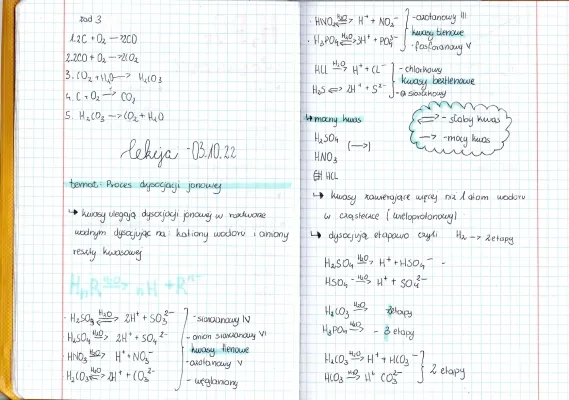 zad 3
1. 2C + O₂ → 2CO
2. 2CO + O₂ → 2CO₂
3. CO₂ + H₂O → H₂CO₃
4. C + O₂ → CO₂
5. H₂CO₃ → CO₂ + H₂O
lekcja - 03.10.22
temat: Proces dysocjacji jonowej
↳ kwasy ulegają dysocjacji jonowej w roztworze
wodnym dysocjując na: kationy wodoru i aniony
reszty kwasowej
HₙR H₂O→ nH⁺ + Rⁿ⁻
· H₂SO₃ H₂O⇄ 2H⁺ + SO₃²⁻ - siarczanowy IV
H₂SO₄ H₂O→ 2H⁺ + SO₄²⁻ - anion siarczanowy VI
kwasy tlenowe
· HNO₃ H₂O→ H⁺ + NO₃⁻ - azotanowy V
H₂CO₃ H₂O⇄ 2H⁺ + CO₃²⁻ - węglanowy
· HNO₂ H₂O⇄ H⁺ + NO₂⁻ - azotanowy III
kwasy tlenowe
· H₃PO₄ H₂O⇄ 3H⁺ + PO₄³⁻ - fosforanowy V
HCl H₂O→ H⁺ + Cl⁻ - chlorkowy
kwasy beztlenowe
H₂S ⇄ 2H⁺ + S²⁻ - siarczkowy
↳ mocny kwas
H₂SO₄
HNO₃ (→)
HCL
⇄ - słaby kwas
→ - mocny kwas
↳ kwasy zawierające więcej niż 1 atom wodoru
w cząsteczce (wieloprotonowy)
↳ dysocjują etapowo czyli H₂ → 2 etapy
H₂SO₄ H₂O→ H⁺ + HSO₄⁻
HSO₄⁻ H₂O→ H⁺ + SO₄²⁻
H₂CO₃ H₂O→ etapy
H₃PO₄ H₂O→ - 3 etapy
H₂CO₃ H₂O→ H⁺ + HCO₃⁻
2 etapy
HCO₃ H₂O→ H⁺ CO₃²⁻